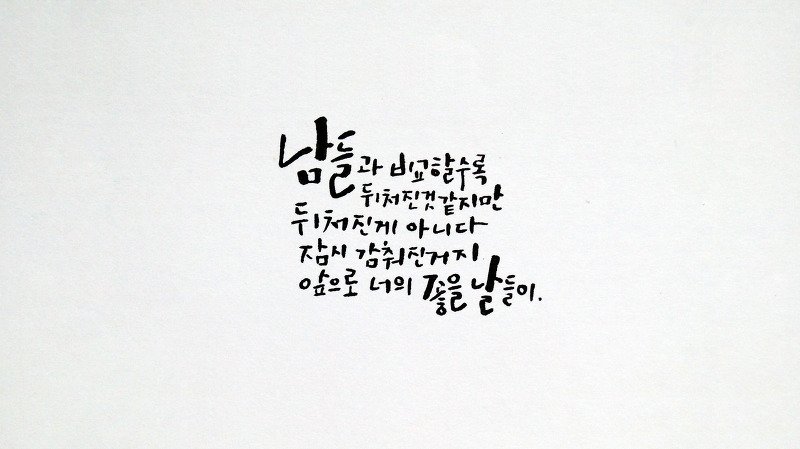 남들과 비교할수록
뒤처진것같지만
뒤처진게 아니다
잠시 감춰진거지
앞으로 너의 좋을 날들이.